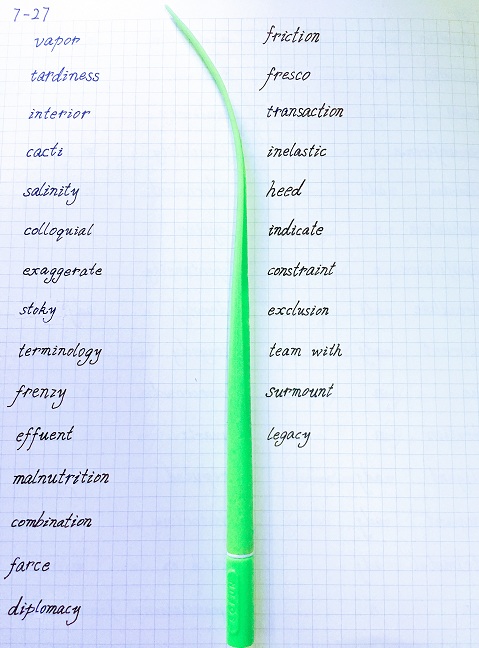 7-27
vapor
tardiness
interior
cacti
salinity
colloquial
exaggerate
stoky
terminology
frenzy
effuent
malnutrition
combination
farce
diplomacy
friction
fresco
transaction
inelastic
heed
indicate
constraint
exclusion
team with
surmount
legacy